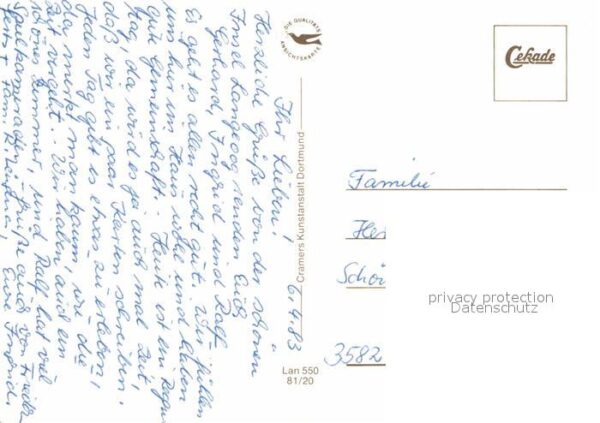 6.4.83
Ihr Lieben!
Herzliche Grüße von der schönen
Insel Langeoog senden Euch
Gerhard, Ingrid und Ralf.
Es geht es allen recht gut. Wir fühlen
uns hier im Haus wohl und haben
gute Gemeinschaft. Heute ist ein
Tag, da wird es ja auch mal Zeit,
daß wir ein paar Karten schreiben.
Jeden Tag gibt es etwas zu erleben,
da merkt man kaum, wie die
Zeit vergeht. Wir haben auch ein
schönes Zimmer, und Ralf hat viel
Spielkameraden. Grüße auch von
+ Fam. Eure Ingrid.
DIE QUALITÄTS
ANSICHTSKARTE
Cramers Kunstanstalt Dortmund
Lan 550
81/20
Cekade
Familie
Hes
Schön
3582
privacy protection
Datenschutz